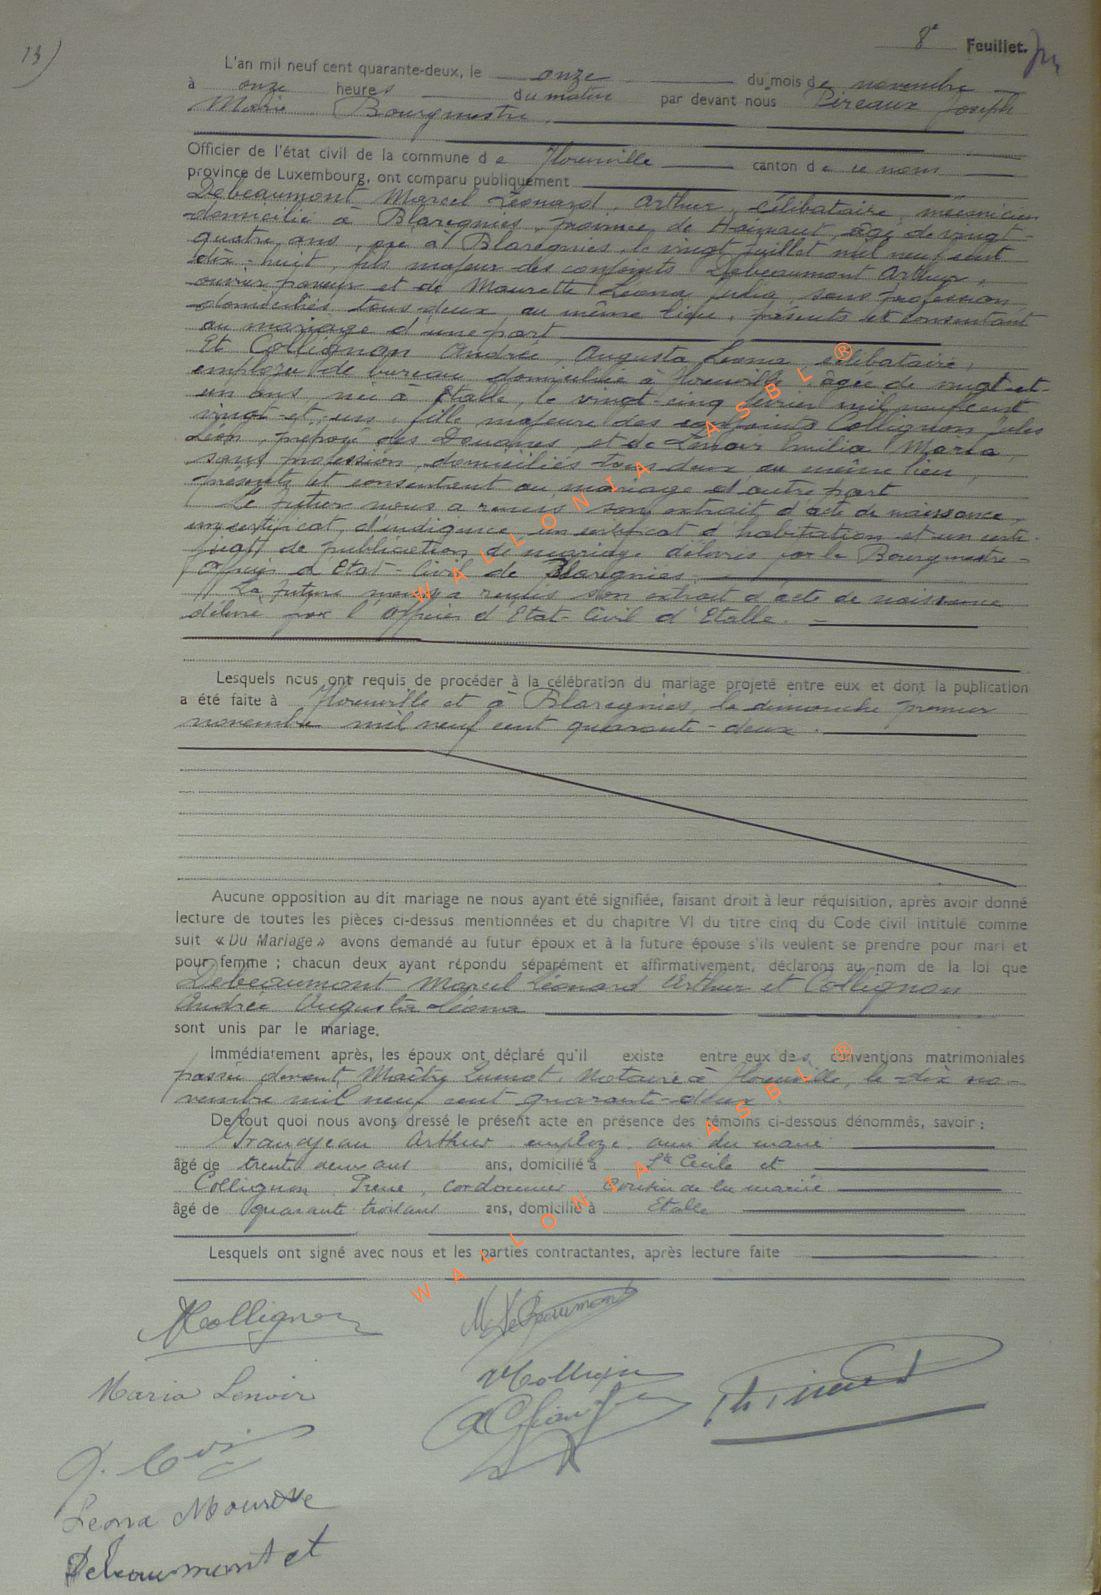 13)
8e Feuillet.
L'an mil neuf cent quarante-deux, le onze du mois de novembre
à onze heures du matin par devant nous Pireaux Joseph
Marie Bourgmestre.
Officier de l'état civil de la commune de Florenville canton de ce nom
province de Luxembourg, ont comparu publiquement
Debeaumont Marcel Léonard, Arthur, célibataire, mécanicien
domicilié à Blaregnies, province de Hainaut, âgé de vingt-
quatre ans, né à Blaregnies, le vingt juillet mil neuf cent
dix-huit, fils majeur des conjoints Debeaumont Arthur,
ouvrier paveur et de Maurette Léona Julia, sans profession,
domiciliés tous deux au même lieu, présents et consentant
au mariage d'une part
Et Collignon Andrée, Augusta Léona, célibataire,
employée de bureau domiciliée à Florenville âgée de vingt-et-
un ans, née à Etalle, le vingt-cinq février mil neuf cent
vingt-et-un, fille majeure des conjoints Collignon Jules
Léon, préposé des Douanes, et de Lenoir Emilia Maria,
sans profession, domiciliés tous deux au même lieu,
présents et consentant au mariage d'autre part
Le futur nous a remis son extrait d'acte de naissance,
un certificat d'indigence, un certificat d'habitation et un certi-
ficat de publication de mariage délivrés par le Bourgmestre-
Officier d'Etat-Civil de Blaregnies.
La future nous a remis son extrait d'acte de naissance
délivré par l'Officier d'Etat-Civil d'Etalle.
Lesquels nous ont requis de procéder à la célébration du mariage projeté entre eux et dont la publication
a été faite à Florenville et à Blaregnies, le dimanche premier
novembre mil neuf cent quarante-deux.
Aucune opposition au dit mariage ne nous ayant été signifiée, faisant droit à leur réquisition, après avoir donné
lecture de toutes les pièces ci-dessus mentionnées et du chapitre VI du titre cinq du Code civil intitulé comme
suit « Du Mariage » avons demandé au futur époux et à la future épouse s'ils veulent se prendre pour mari et
pour femme ; chacun deux ayant répondu séparément et affirmativement, déclarons au nom de la loi que
Debeaumont Marcel Léonard Arthur et Collignon
Andrée Augusta Léona
sont unis par le mariage.
Immédiatement après, les époux ont déclaré qu'il existe entre eux des conventions matrimoniales
passées devant Maître Notaire à Florenville, le dix no-
vembre mil neuf cent quarante-deux.
De tout quoi nous avons dressé le présent acte en présence des témoins ci-dessous dénommés, savoir :
Grandjean Arthur employé ami du marié
âgé de trente deux ans ans, domicilié à Ste Cécile et
Collignon cordonnier cousin de la mariée
âgé de quarante trois ans ans, domicilié à Etalle
Lesquels ont signé avec nous et les parties contractantes, après lecture faite
ACollignon
M. Debeaumont
Maria Lenoir
Leona Mourette
Debeaumont
WALLONIA ASBL ®
WALLONIA ASBL ®